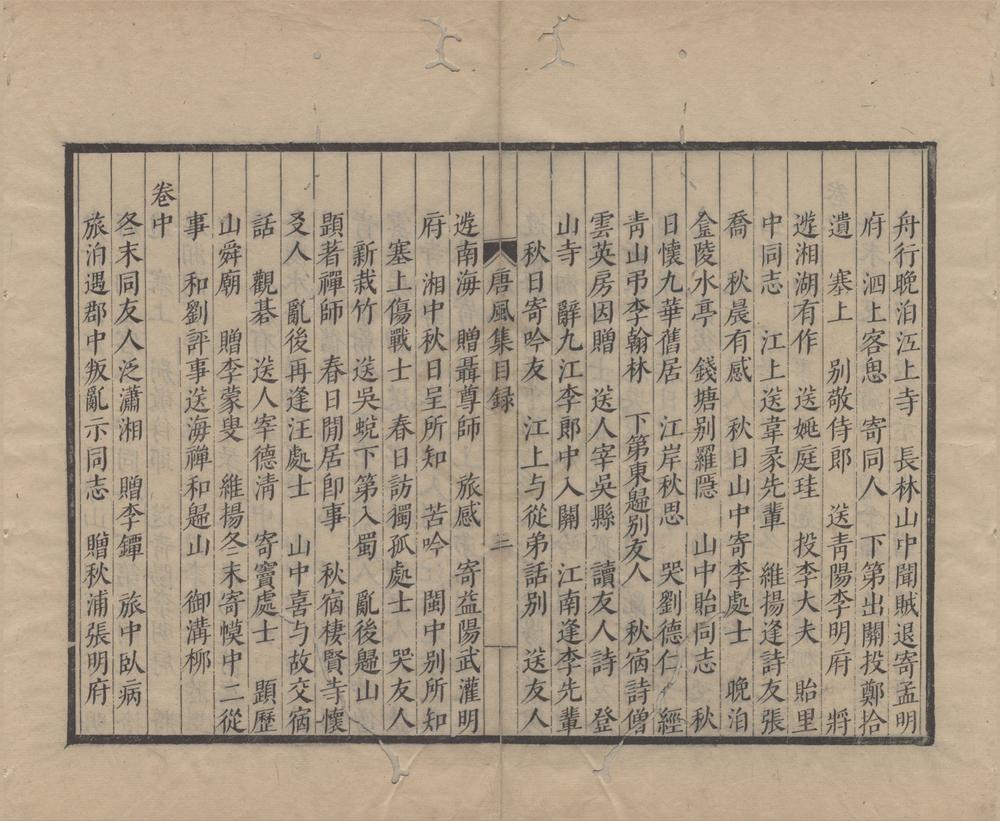 舟行晚泊江上寺　長林山中聞賊退寄孟明
府　泗上客思　寄同人　下第出關投鄭拾
遺　塞上　別敬侍郎　送靑陽李明府　將
遊湘湖有作　送姚庭珪　投李大夫　貽里
中同志　江上送韋彖先輩　維揚逢詩友張
喬　秋晨有感　秋日山中寄李處士　晚泊
金陵水亭　錢塘别羅隱　山中貽同志　秋
日懷九華舊居　江岸秋思　哭劉德仁　經
靑山弔李翰林　下第東歸别友人　秋宿詩僧
雲英房因贈　送人宰吳縣　讀友人詩　登
山寺　辭九江李郎中入關　江南逢李先輩
秋日寄吟友　江上与從弟話别　送友人
唐風集目録　三
遊南海　贈聶尊師　旅感　寄益陽武灌明
府　湘中秋日呈所知　苦吟　閩中别所知
塞上傷戰士　春日訪獨孤處士　哭友人
新栽竹　送吳蛻下第入蜀　亂後歸山
題著禪師　春日閒居即事　秋宿棲賢寺懷
友人　亂後再逢汪處士　山中喜与故交宿
話　觀碁　送人宰德淸　寄竇處士　題歷
山舜廟　贈李蒙叟　維揚冬末寄幙中二從
事　和劉評事送海禪和歸山　御溝柳
卷中
冬末同友人泛瀟湘　贈李鐔　旅中臥病
旅泊遇郡中叛亂示同志　贈秋浦張明府